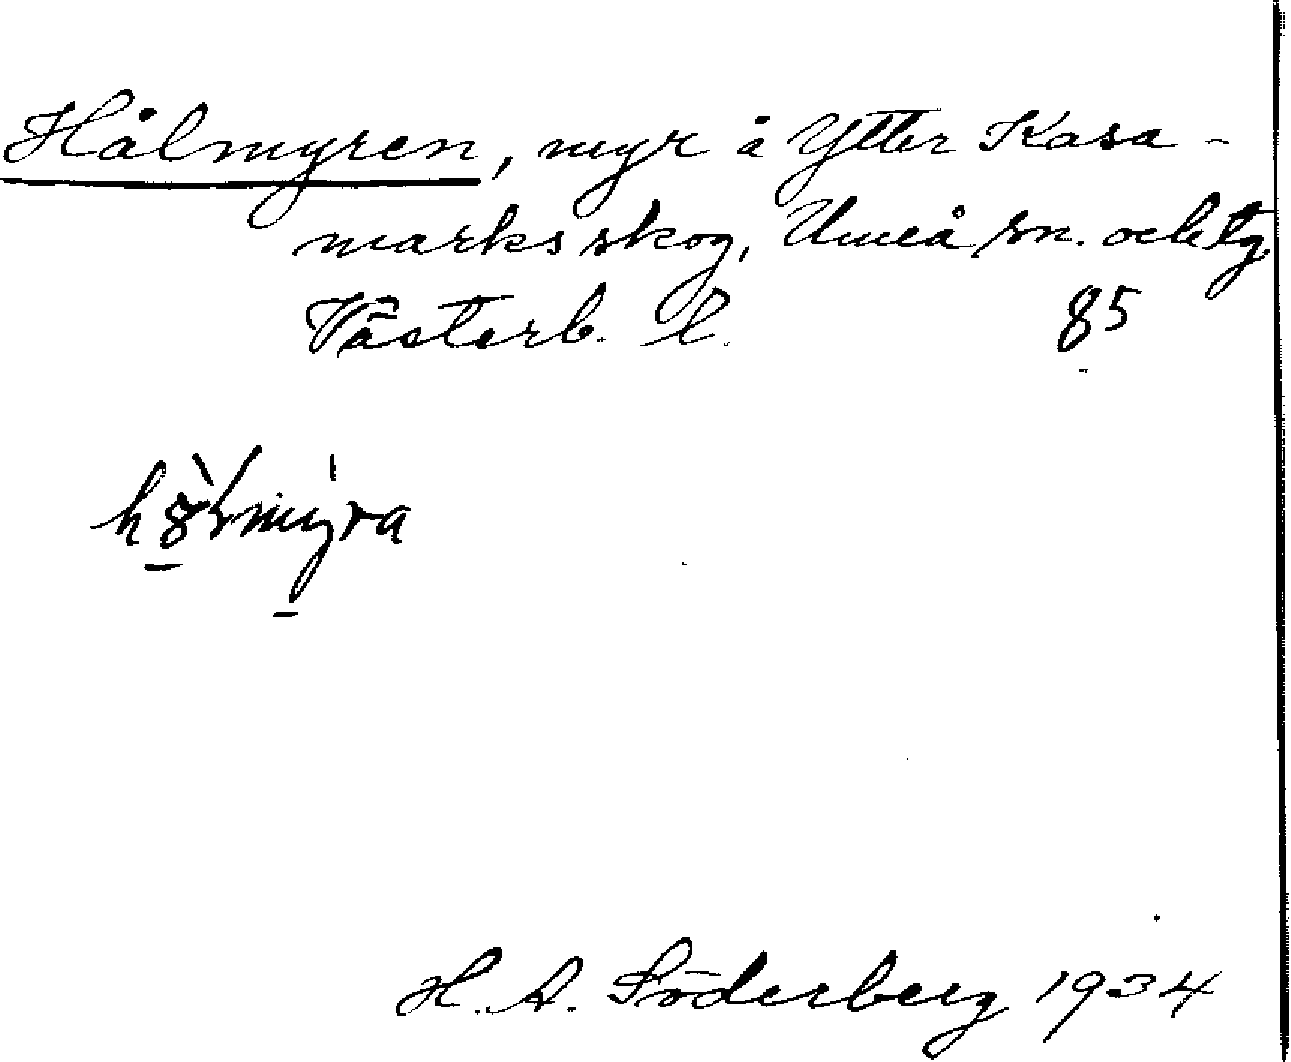 Hålmyren, myr å Ytter Kasa-
marks skog, Umeå sn. och tg.
Västerb. l. 85
H. A. Söderberg 1934